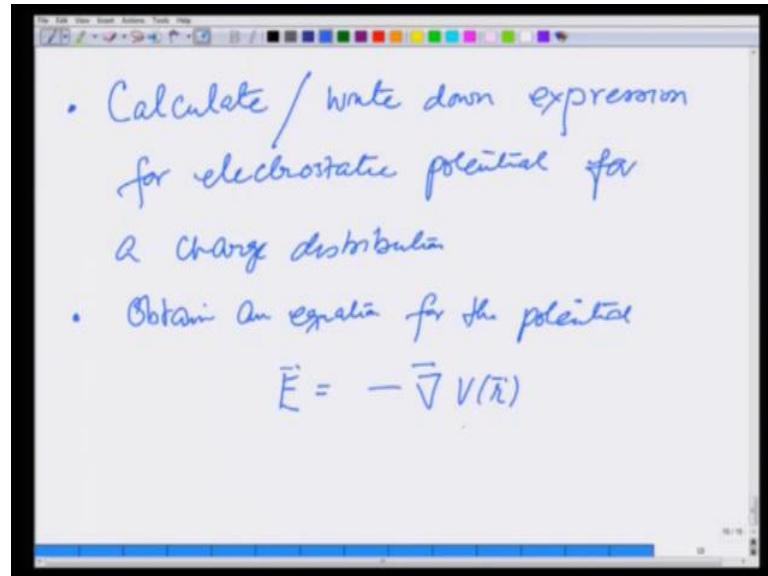 File Edit View Insert Actions Tools Help
• Calculate / write down expression
for electrostatic potential for
a charge distribution
• Obtain an equation for the potential
E⃗ = − ∇⃗ V(r⃗)